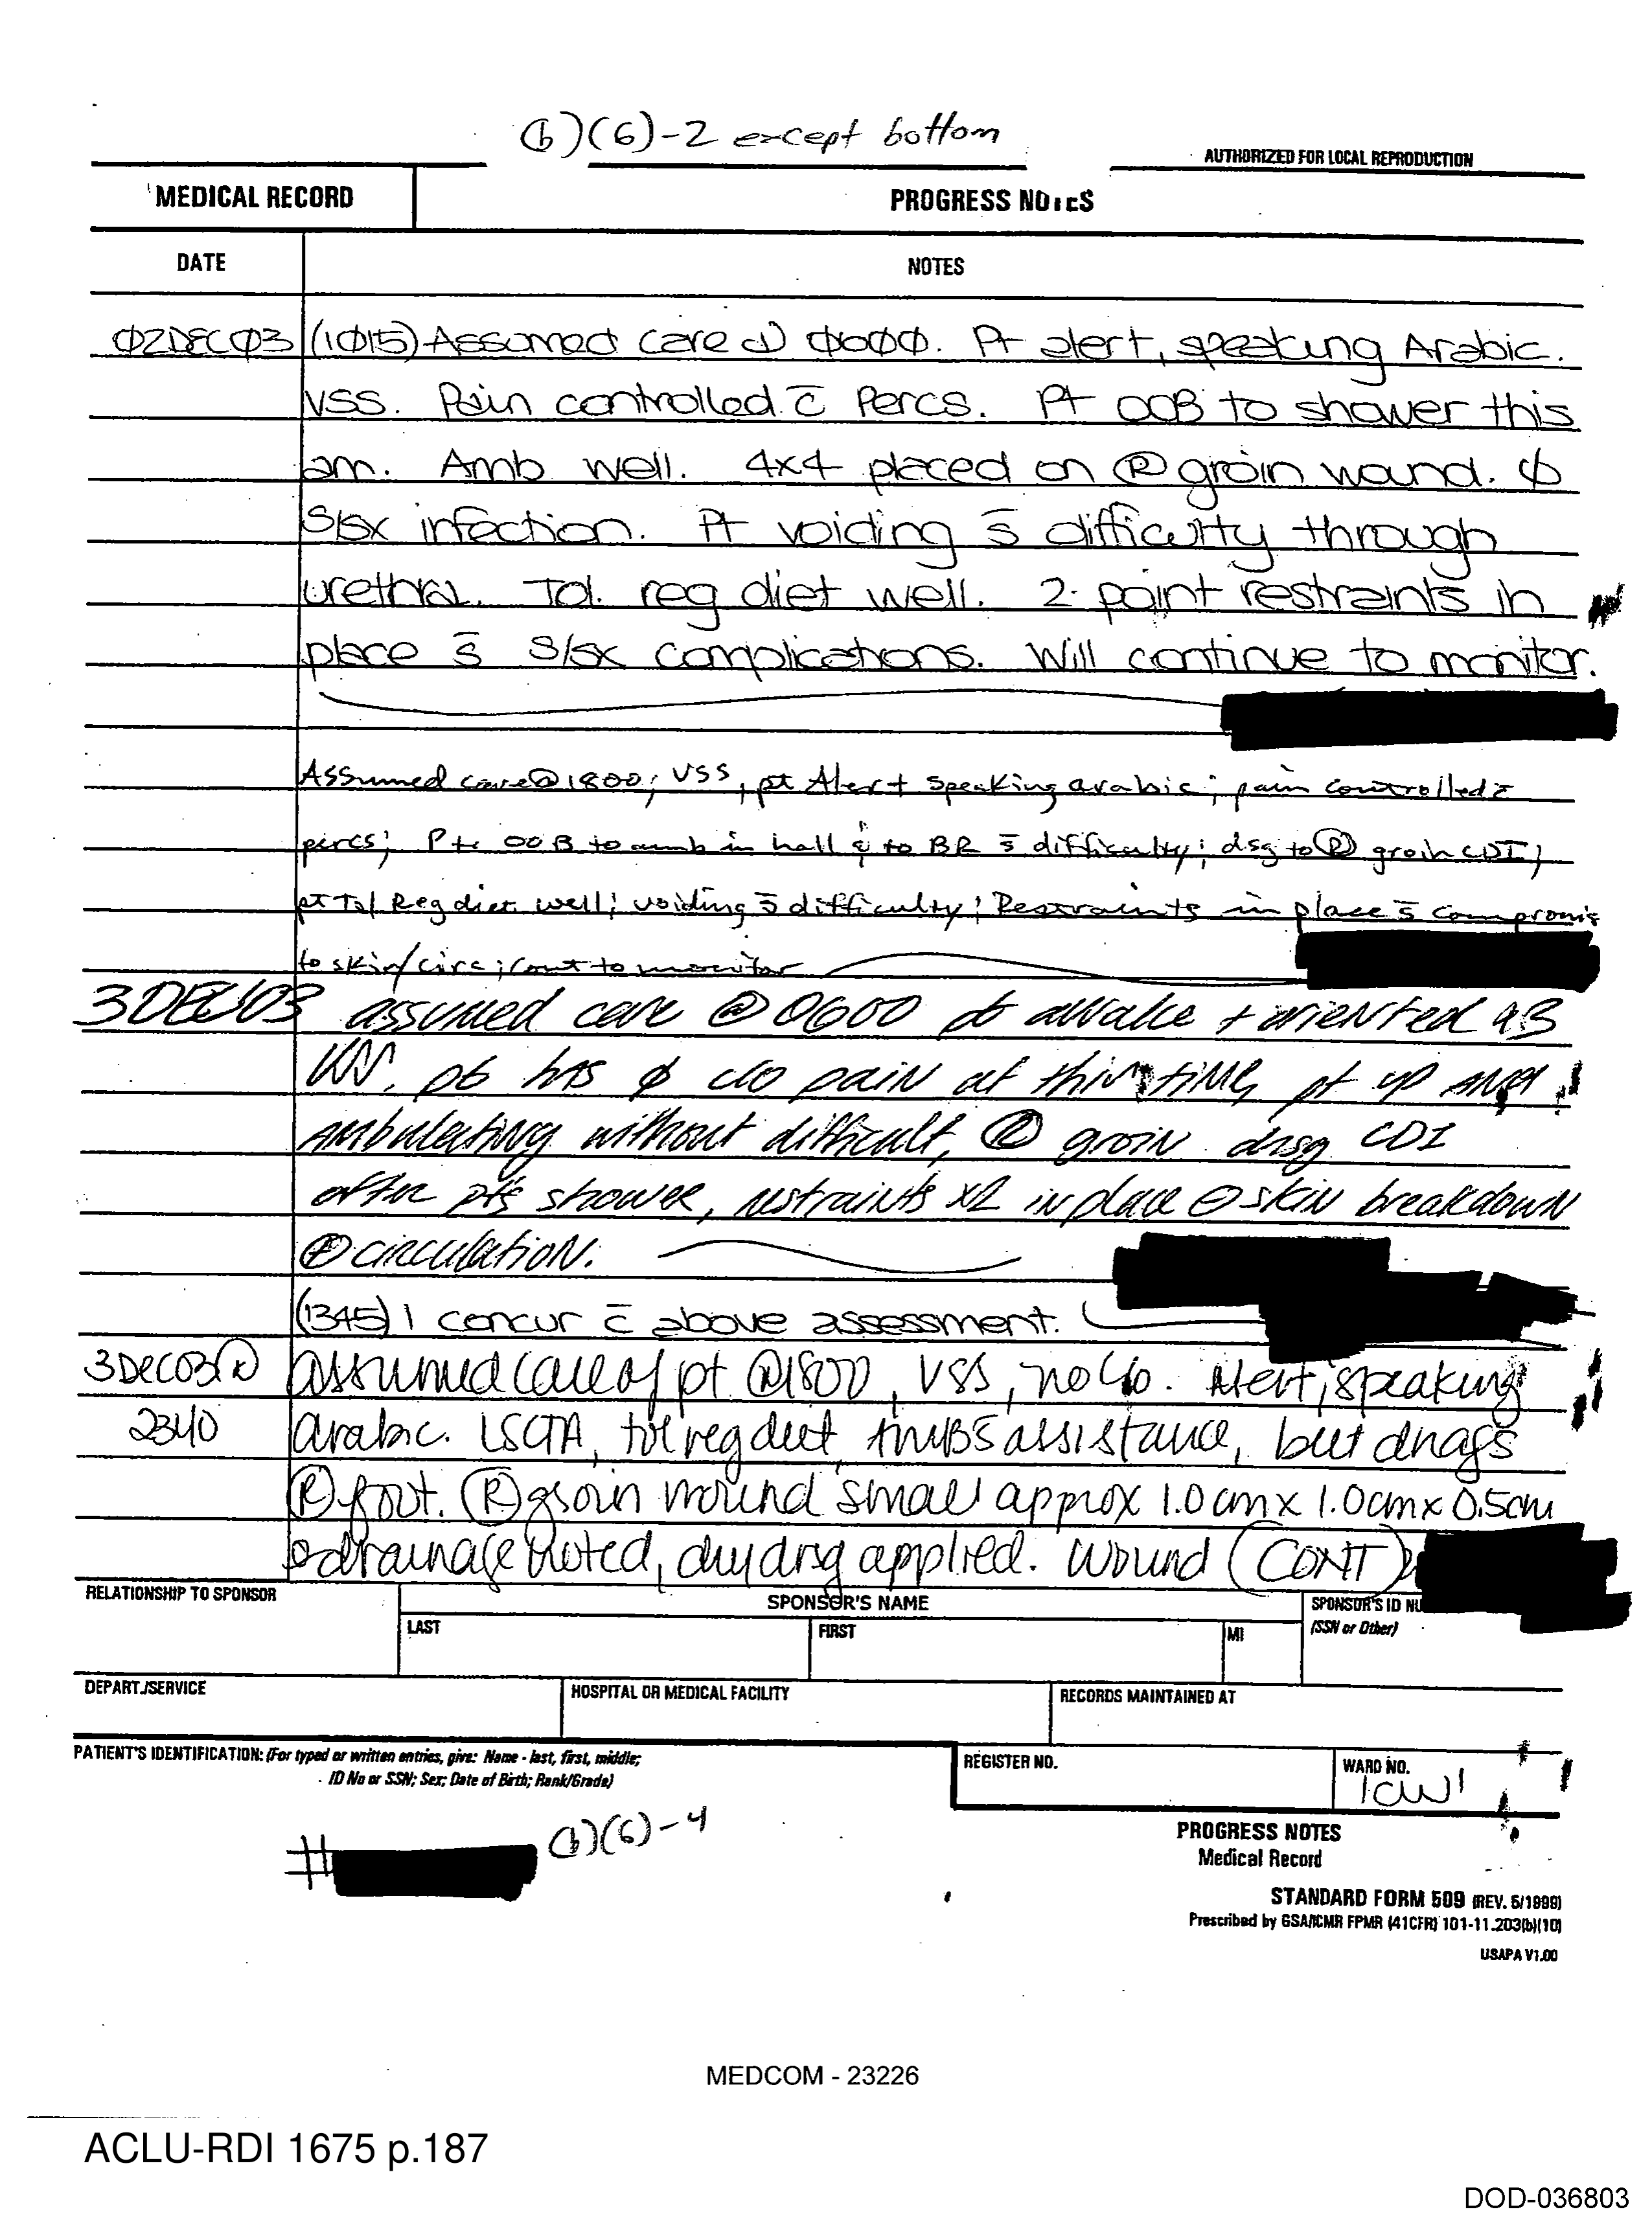 (b)(6)-2 except bottom
AUTHORIZED FOR LOCAL REPRODUCTION
MEDICAL RECORD
PROGRESS NOTES
DATE
NOTES
02DEC03 (1015) Assumed care @ Pt alert, speaking Arabic.
VSS. Pain controlled c̄ Percs. Pt OOB to shower this
am. Amb well. 4x4 placed on Ⓡ groin wound. ∅
S/sx infection. Pt voiding s̄ difficulty through
urethra. Tol. reg diet well. 2-point restraints in
place s̄ S/sx complications. Will continue to monitor.
Assumed care @ 1800; VSS, pt Alert speaking arabic; pain controlled c̄
percs; Pt OOB to amb in hall & to BR s̄ difficulty; dsg to Ⓡ groin CDI;
pt Tol Reg diet well; voiding s̄ difficulty; Restraints in place s̄ compromis
to skin/circ; cont to monitor
3DEC03 assumed care @ 0600 pt awake + oriented x3
VSS, pt has ∅ c/o pain at this time, pt up and
ambulating without difficult, Ⓡ groin drsg CDI
after pt's shower, restraints x2 in place ⊖ skin breakdown
⊕ circulation.
(1345) I concur c̄ above assessment.
3DEC03 Assumed care of pt @1800, VSS, no c/o. Alert, speaking
2340 arabic. LSCTA, tol reg diet, amb s̄ assistance, but drags
Ⓡ foot. Ⓡ groin wound small approx 1.0cm x 1.0cm x 0.5cm
⊖ drainage noted, dry drsg applied. Wound (CONT)
RELATIONSHIP TO SPONSOR
SPONSOR'S NAME
SPONSOR'S ID NU
LAST
FIRST
MI
(SSN or Other)
DEPART./SERVICE
HOSPITAL OR MEDICAL FACILITY
RECORDS MAINTAINED AT
PATIENT'S IDENTIFICATION: (For typed or written entries, give: Name - last, first, middle;
ID No or SSN; Sex; Date of Birth; Rank/Grade)
REGISTER NO.
WARD NO.
ICW1
# (b)(6)-4
PROGRESS NOTES
Medical Record
STANDARD FORM 509 (REV. 5/1999)
Prescribed by GSA/ICMR FPMR (41CFR) 101-11.203(b)(10)
USAPA V1.00
MEDCOM - 23226
ACLU-RDI 1675 p.187
DOD-036803